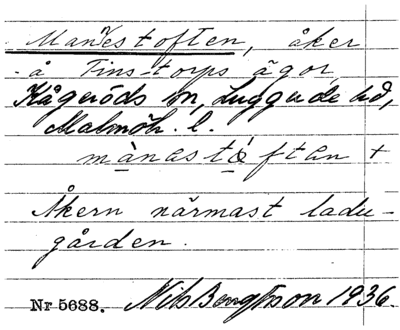 Mannestoften, åker
å Finstorps ägor,
Kågeröds sn, Luggude hd,
Malmöh. l.
mànastǽftan +
Åkern närmast ladu-
gården.
Nr 5688. Nils Bengtsson 1936.